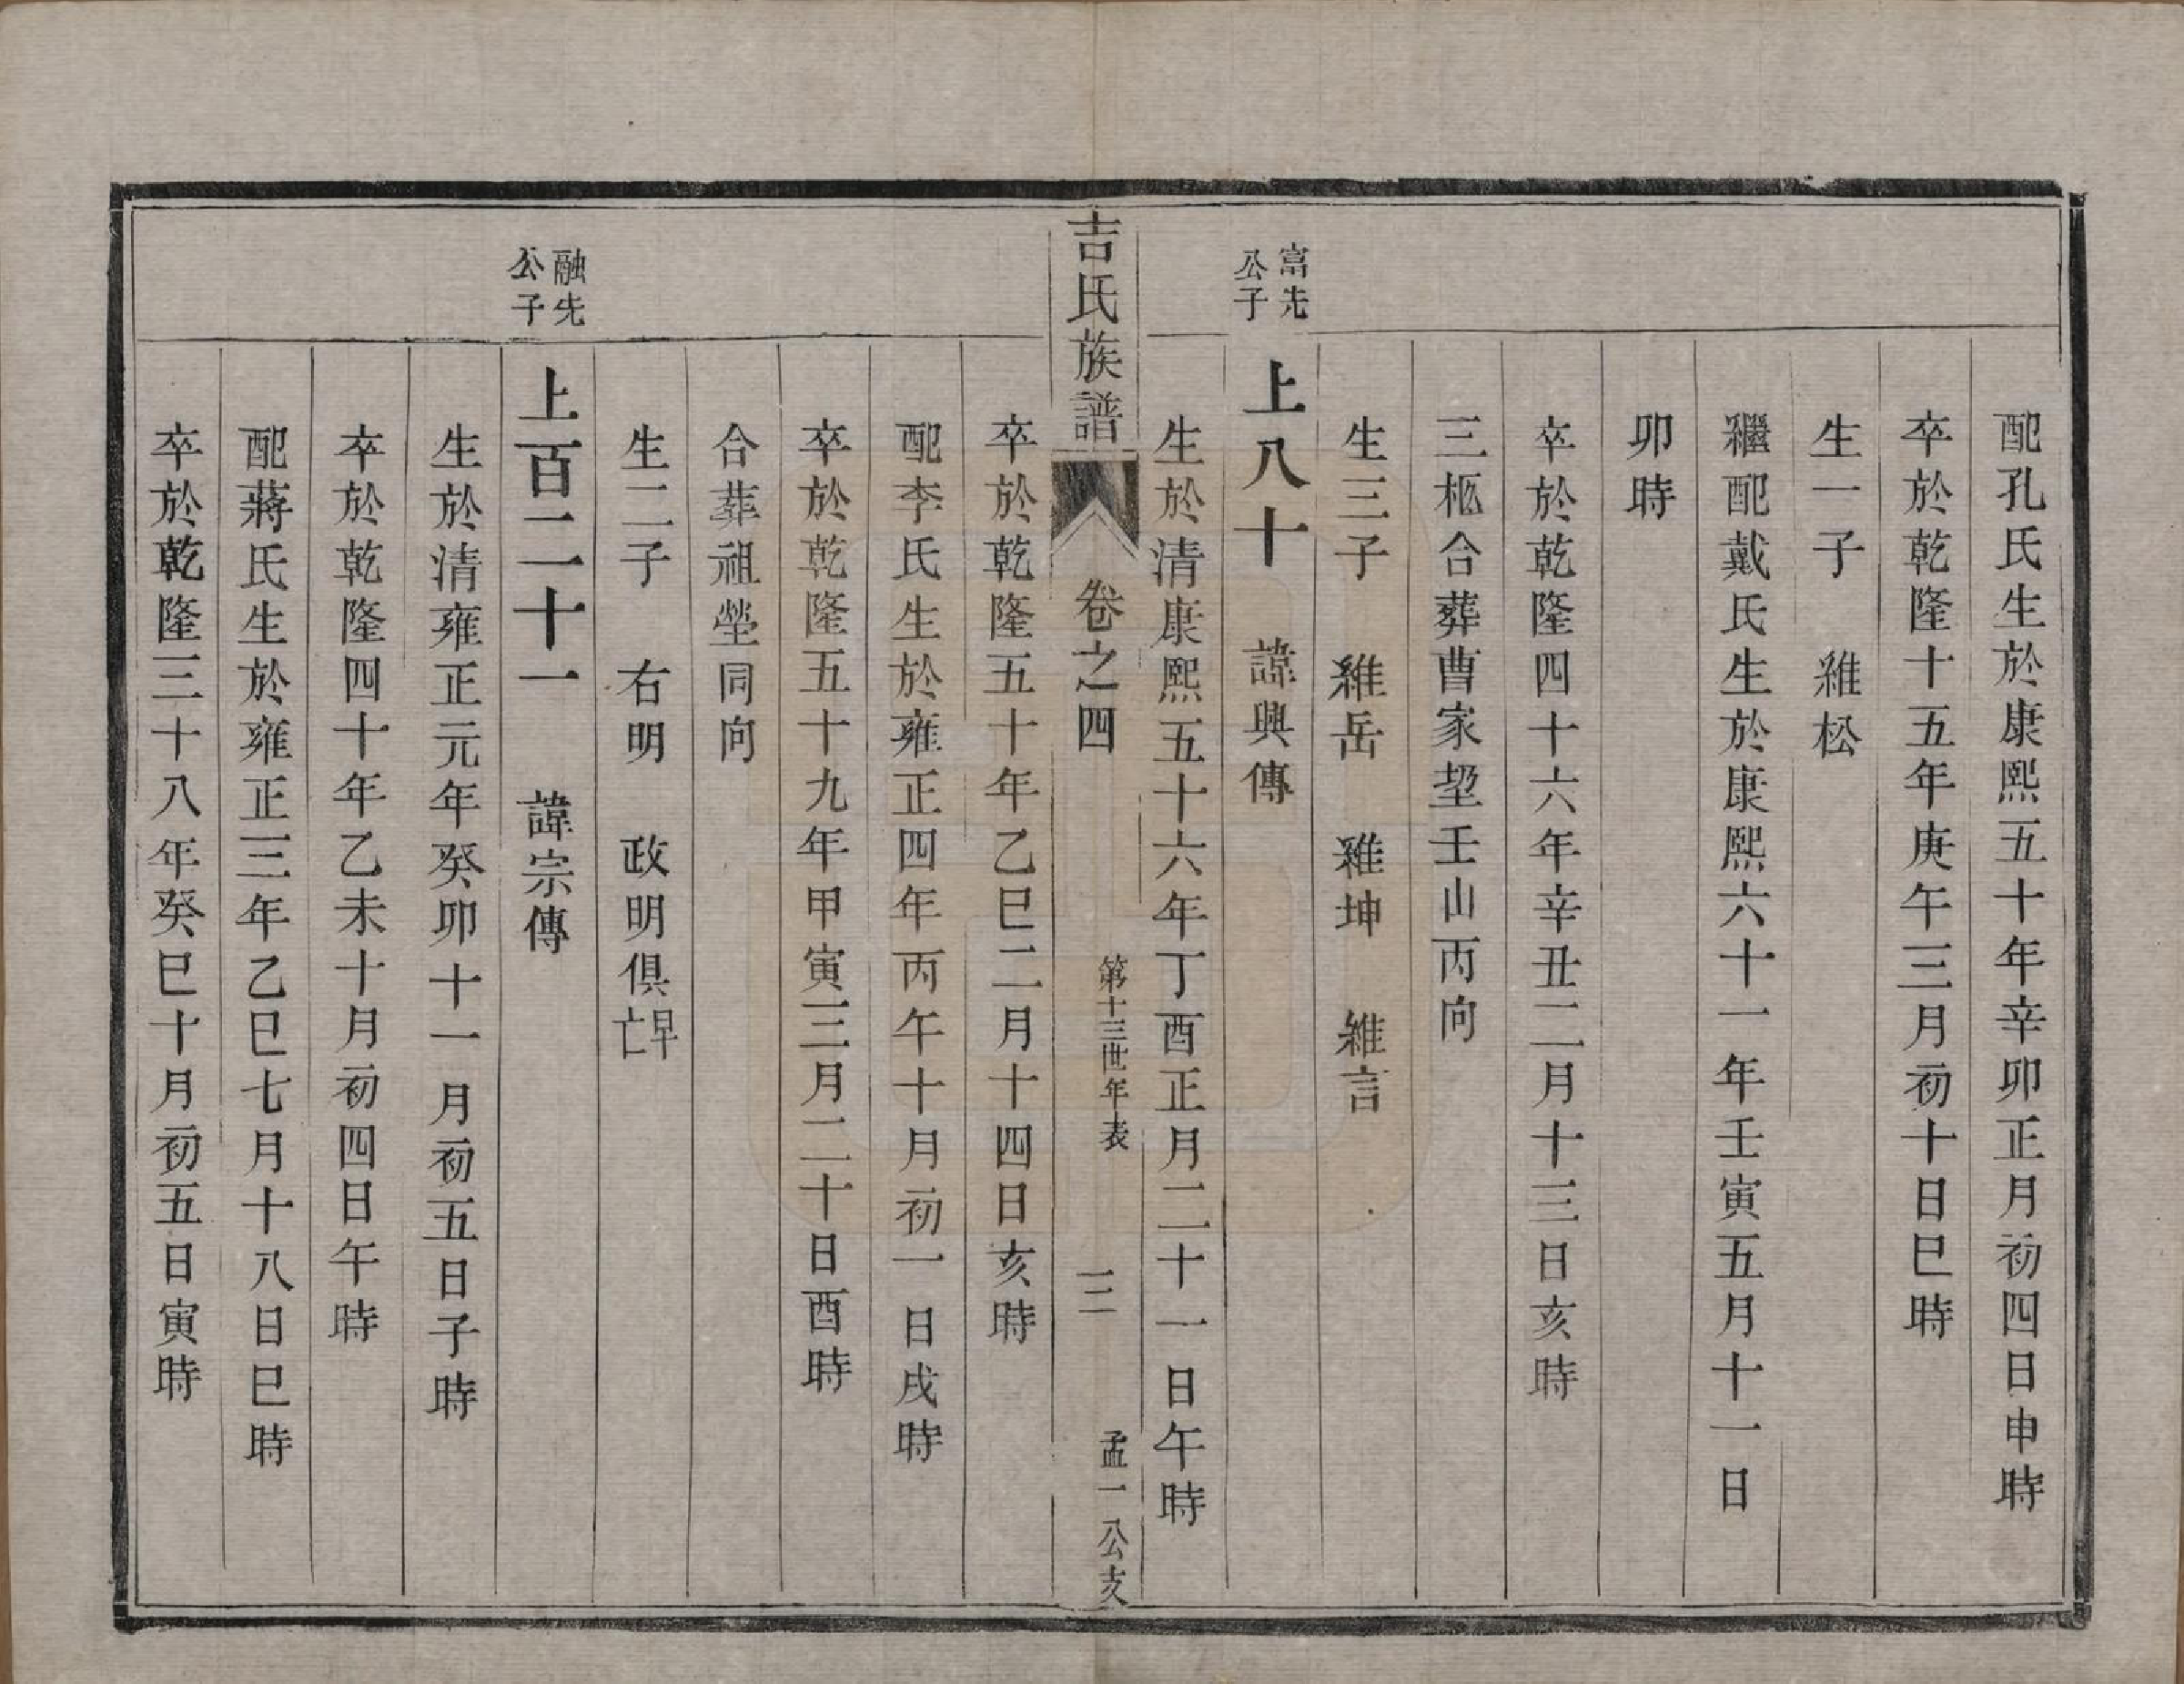 配孔氏生於康熙五十年辛卯正月初四日申時
卒於乾隆十五年庚午三月初十日巳時
生一子　維松
繼配戴氏生於康熙六十一年壬寅五月十一日
卯時
卒於乾隆四十六年辛丑二月十三日亥時
三柩合葬曹家垇壬山丙向
生三子　維岳　維坤　維言
富先公子
上八十　諱興傳
生於清康熙五十六年丁酉正月二十一日午時
吉氏族譜　卷之四　第十三世年表　三　孟一公支
卒於乾隆五十年乙巳二月十四日亥時
配李氏生於雍正四年丙午十月初一日戌時
卒於乾隆五十九年甲寅三月二十日酉時
合葬祖塋同向
生二子　右明　政明俱早亡
融先公子
上百二十一　諱宗傳
生於清雍正元年癸卯十一月初五日子時
卒於乾隆四十年乙未十月初四日午時
配蔣氏生於雍正三年乙巳七月十八日巳時
卒於乾隆三十八年癸巳十月初五日寅時